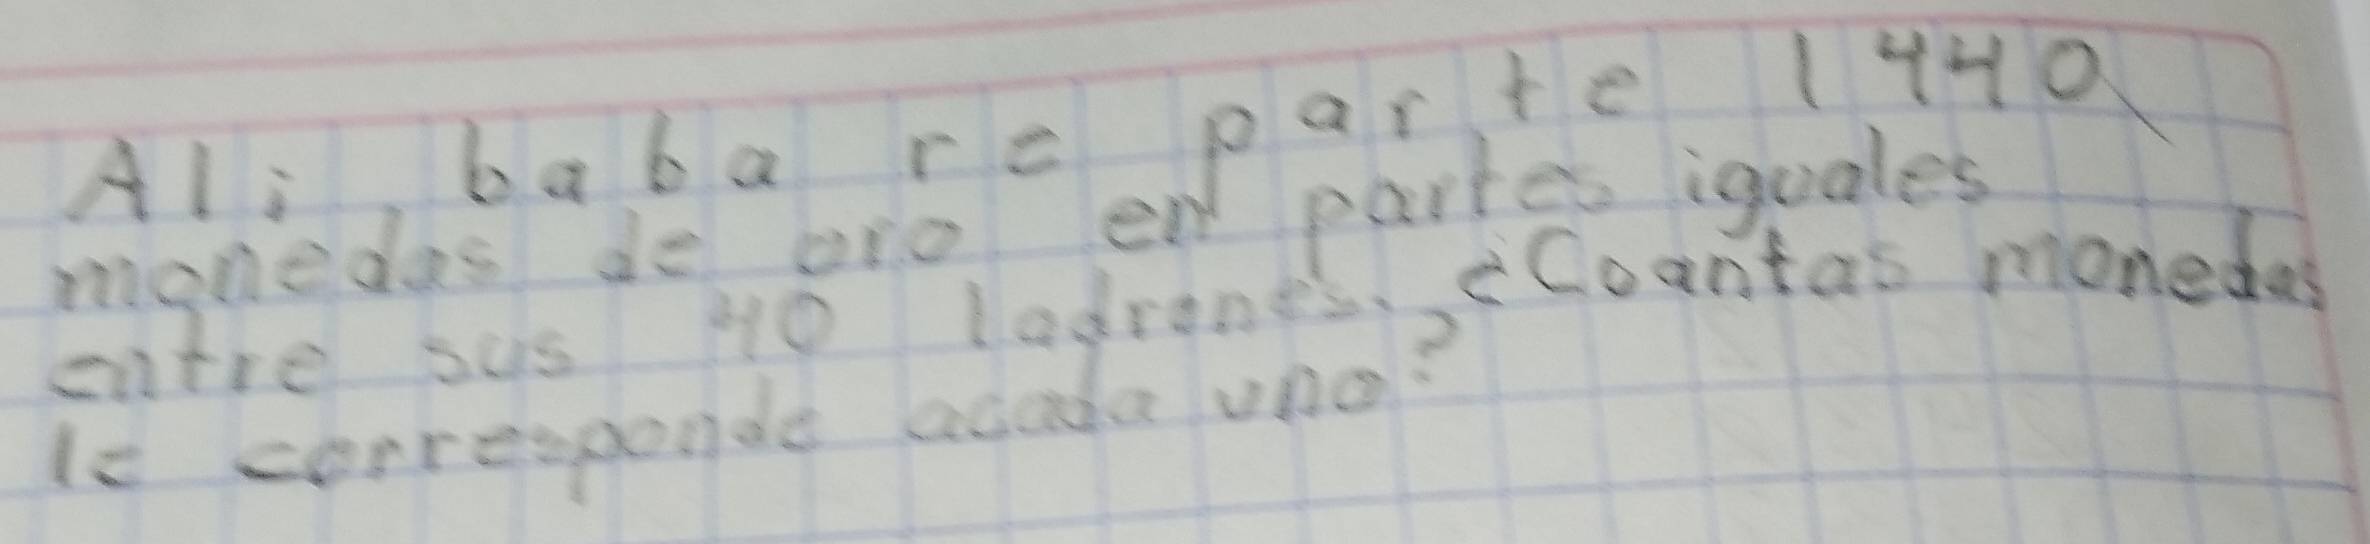 Ali baba reparte 1440
monedas de oro en partes iguales
entre sus 40 ladrones. ¿Coantas monedas
le corresponde acada uno?